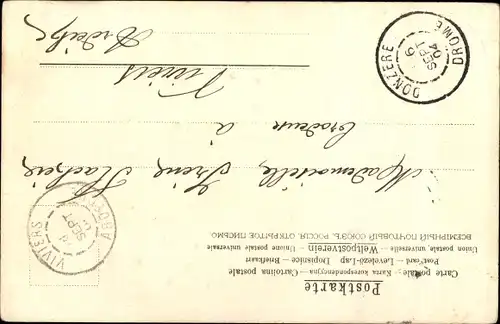 Postkarte
Carte postale — Karta korespondencyjna — Cartolina postale
Post Card — Levelező-Lap — Dopisnice — Briefkaart
Union postale universelle — Weltpostverein — Unione postale universale
ВСЕМІРНЫЙ ПОЧТОВЫЙ СОЮЗЪ. РОССІЯ. ОТКРЫТОЕ ПИСЬМО.
Mademoiselle Irène
à
Viviers
Ardèche
DONZERE
9
SEPT
04
DROME
VIVIERS
SEPT